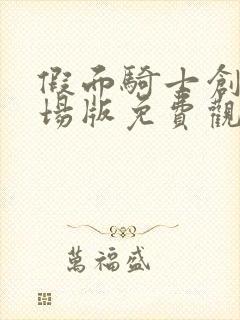 假面騎士創
場版免費觀
萬福盛